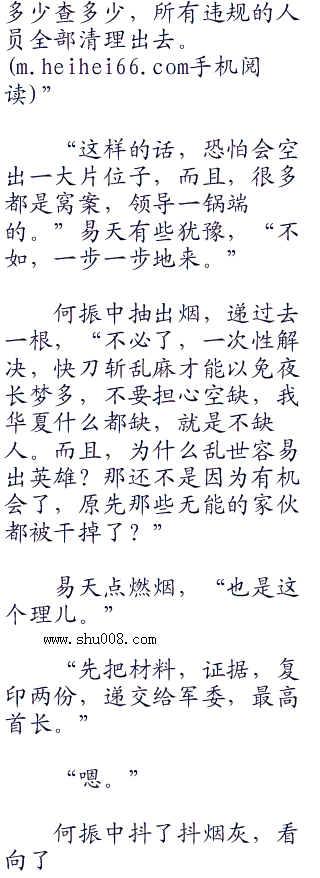 多少查多少，所有违规的人
员全部清理出去。
(m.heihei66.com手机阅
读)”
“这样的话，恐怕会空
出一大片位子，而且，很多
都是窝案，领导一锅端
的。”易天有些犹豫，“不
如，一步一步地来。”
何振中抽出烟，递过去
一根，“不必了，一次性解
决，快刀斩乱麻才能以免夜
长梦多，不要担心空缺，我
华夏什么都缺，就是不缺
人。而且，为什么乱世容易
出英雄？那还不是因为有机
会了，原先那些无能的家伙
都被干掉了？”
易天点燃烟，“也是这
个理儿。”
www.shu008.com
“先把材料，证据，复
印两份，递交给军委，最高
首长。”
“嗯。”
何振中抖了抖烟灰，看
向了